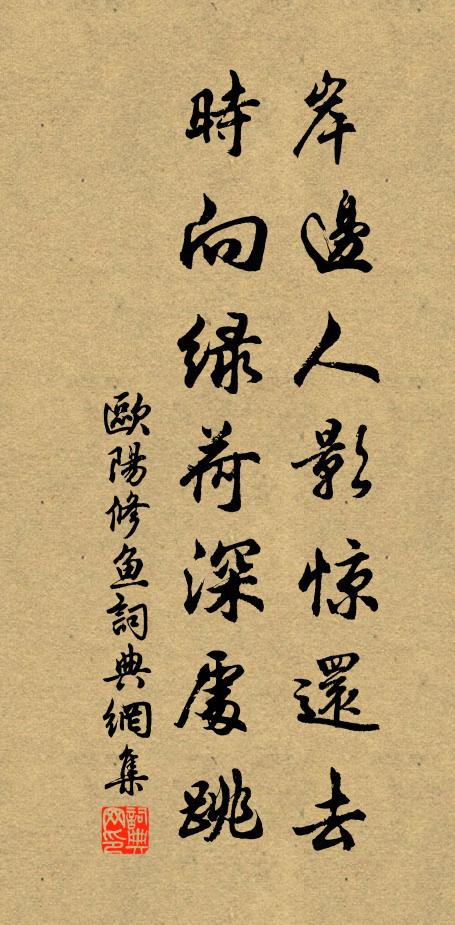 岸邊人影惊還去
時向緑荷深處跳
歐陽修鱼詞典網集
詞典网印